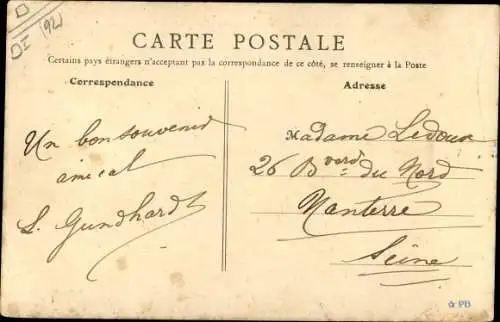 (92)
CARTE POSTALE
Certains pays étrangers n'acceptant pas la correspondance de ce côté, se renseigner à la Poste
Correspondance
Adresse
Un bon souvenir
amical
L. Gundhardt
Madame Ledoux
26 Bvard du Nord
Nanterre
Seine
☆ PB